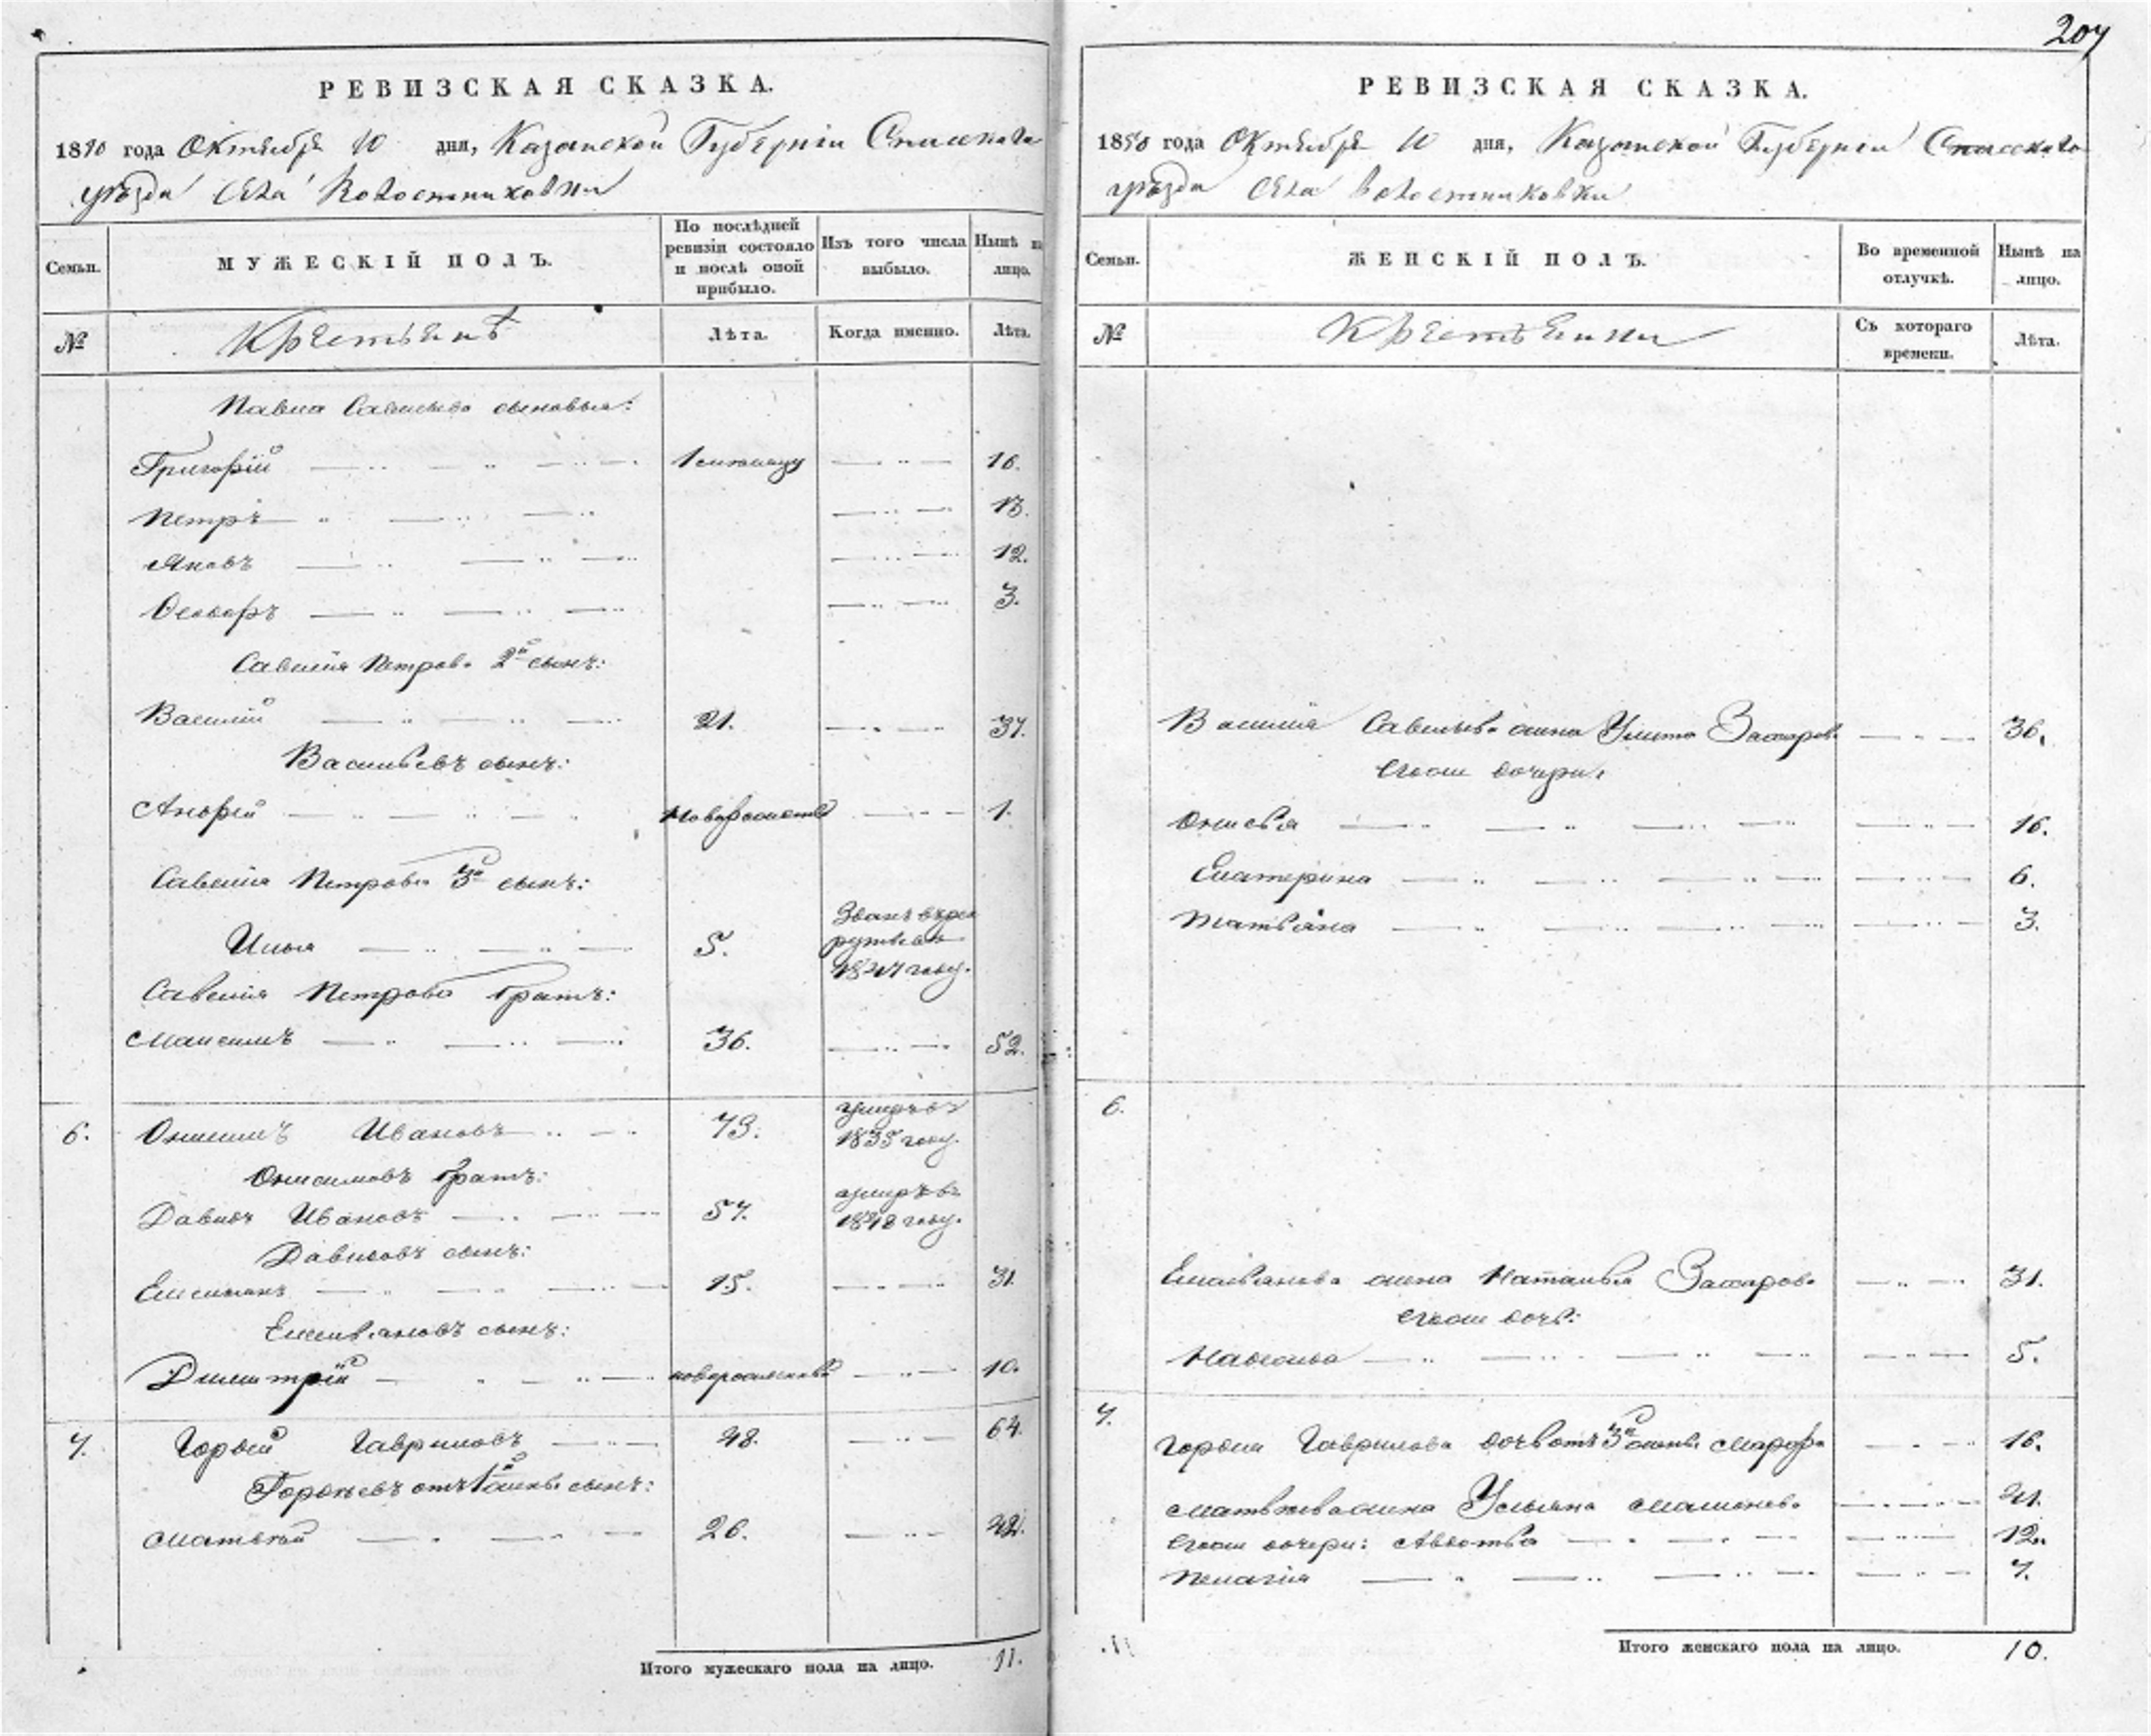 207
РЕВИЗСКАЯ СКАЗКА.
1850 года Октября 10 дня, Казанской Губернiи Спасскаго
уѣзда Села Волостниковки
Семьи. МУЖЕСКIЙ ПОЛЪ. По послѣдней ревизiи состояло и послѣ оной прибыло. Изъ того числа выбыло. Нынѣ на лицо.
№ Крестьянъ Лѣта. Когда именно. Лѣта.
Павла Савельева сыновья:
Григорiй 16.
Петръ 13.
Яковъ 12.
Ѳедоръ 3.
Савелiя Петрова 2й сынъ:
Василiй 21. 37.
Васильевъ сынъ:
Андрей новорожденъ 1.
Савелiя Петрова 3й сынъ:
Илья 5. 1847 году.
Савелiя Петрова братъ:
Максимъ 36. 52.
6. Онисимъ Ивановъ 73. умеръ въ 1835 году.
Онисимовъ братъ:
Давыдъ Ивановъ 57. умеръ въ 1848 году.
Давыдовъ сынъ:
Емельянъ 15. 31.
Емельяновъ сынъ:
Дмитрiй новорожденъ 10.
7. Гордей Гавриловъ 48. 64.
Гордѣевъ отъ 1й жены сынъ:
Матвѣй 26. 42.
Итого мужескаго пола на лицо. 11.
РЕВИЗСКАЯ СКАЗКА.
1850 года Октября 10 дня, Казанской Губернiи Спасскаго
уѣзда Села Волостниковки
Семьи. ЖЕНСКIЙ ПОЛЪ. Во временной отлучкѣ. Нынѣ на лицо.
№ Крестьянки Съ котораго времени. Лѣта.
Василiя Савельева жена Улита Захарова 36.
Ихъ дочери:
Онисья 16.
Екатерина 6.
Татьяна 3.
6.
Емельянова жена Наталья Захарова 31.
дочь:
5.
7.
Гордея Гаврилова дочь отъ 3й жены Марфа 16.
Матвѣева жена Ульяна 41.
дочери: Авдотья 12.
Пелагiя 7.
Итого женскаго пола на лицо. 10.